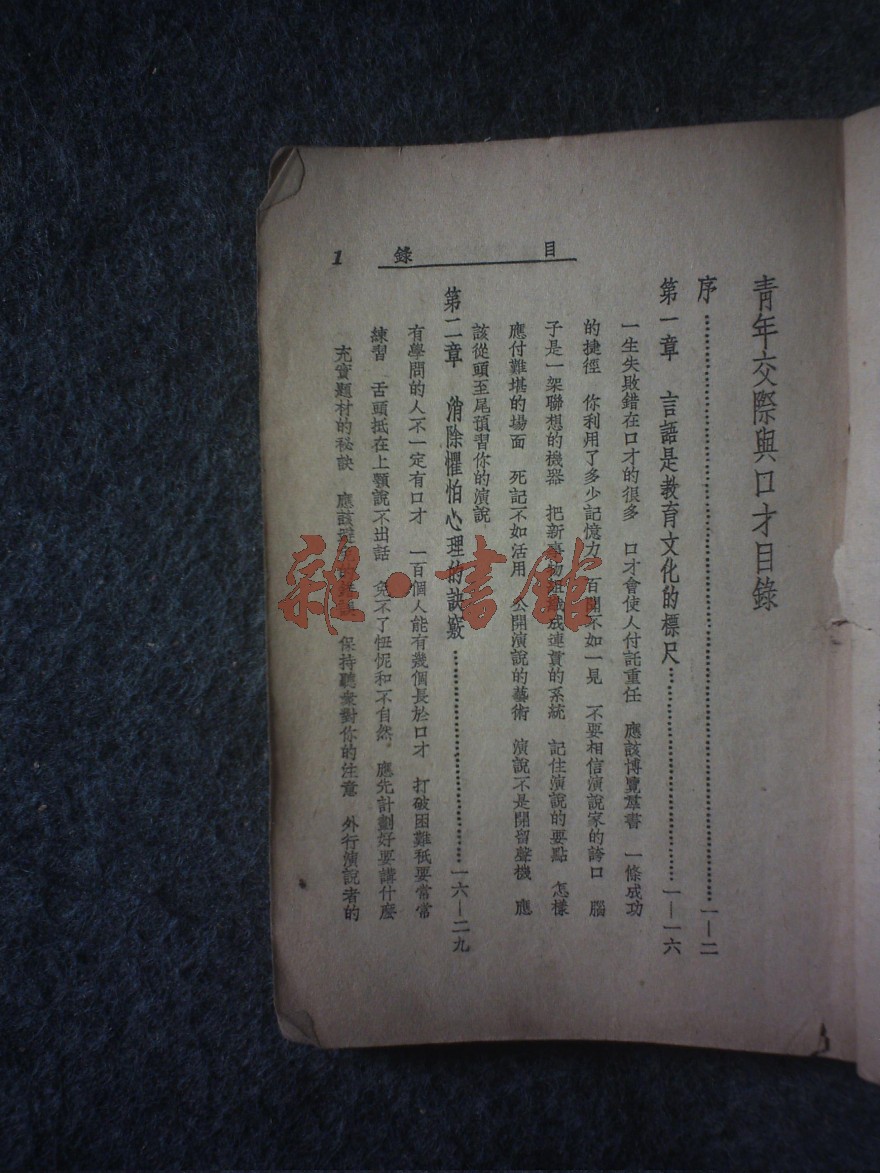 青年交際與口才目錄
序…………………………一—二
第一章　言語是教育文化的標尺…………………………一—一六
一生失敗錯在口才的很多　口才會使人付託重任　應該博覽羣書　一條成功
的捷徑　你利用了多少記憶力　百聞不如一見　不要相信演說家的誇口　腦
子是一架聯想的機器　把新事物組織成連貫的系統　記住演說的要點　怎樣
應付難堪的場面　死記不如活用　公開演說的藝術　演說不是開留聲機　應
該從頭至尾預習你的演說
第二章　消除懼怕心理的訣竅…………………………一六—二九
有學問的人不一定有口才　一百個人能有幾個長於口才　打破困難秖要常常
練習　舌頭抵在上顎說不出話　免不了忸怩和不自然。應先計劃好要講什麼
充實題材的秘訣　應該　保持聽衆對你的注意　外行演說者的
目　錄
1
雜·書館